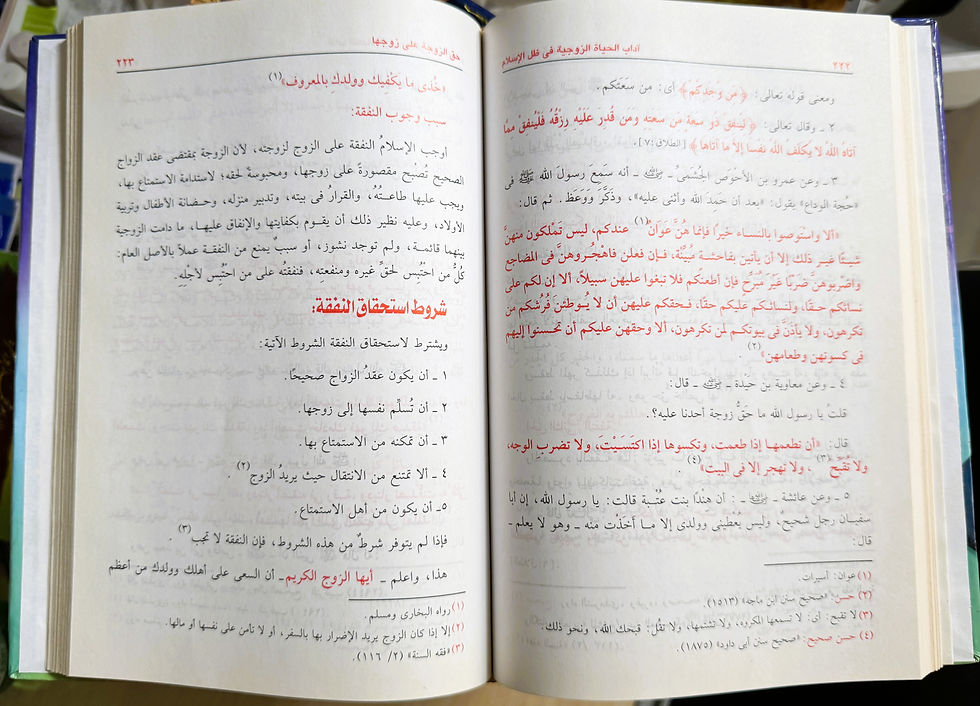 ٢٢٢
آداب الحياة الزوجية فى ظل الإسلام
ومعنى قوله تعالى: ﴿مِّن وُجْدِكُمْ﴾ أى: من سَعَتكم.
٢ ـ وقال تعالى: ﴿لِيُنفِقْ ذُو سَعَةٍ مِّن سَعَتِهِ وَمَن قُدِرَ عَلَيْهِ رِزْقُهُ فَلْيُنفِقْ مِمَّا
آتَاهُ اللَّهُ لا يُكَلِّفُ اللَّهُ نَفْسًا إِلاَّ مَا آتَاهَا﴾ [الطلاق:٧].
٣ ـ وعن عمرو بن الأحْوَص الجُشَمىُّ ـ رضي الله عنه ـ أنه سَمِعَ رسول الله ﷺ فى
«حجة الوداع» يقول: «بعد أن حَمِدَ الله وأثنى عليه»، وذَكَّرَ وَوَعَظ. ثم قال:
«ألا واستوصوا بالنساء خيرًا فإنما هُنَّ عَوَانٌ(١) عندكم، ليس تَمْلكون منهنَّ
شيئًا غير ذلك إلا أن يأتين بفاحشة مُبيِّنَة، فإن فعلن فاهْجُروهنَّ فى المضاجع
واضربوهن ضَربًا غَيْرَ مُبَرِّحٍ فإن أطعنكم فلا تبغوا عليهن سبيلاً، ألا إن لكم على
نسائكم حقًا، ولنسائكم عليكم حقًا، فحقكم عليهن أن لا يُوطئنَ فُرُشكم من
تكرهون، ولا يأذَنَّ فى بيوتكم لمن تكرهون، ألا وحقهن عليكم أن تحسنوا إليهم
فى كسوتهن وطعامهن»(٢).
٤ ـ وعن معاوية بن حيدة ـ رضي الله عنه ـ قال:
قلتُ يا رسول الله ما حَقُّ زوجة أحدنا عليه؟.
قال: «أن تطعمها إذا طعمت، وتكسوها إذا اكتَسَيْتَ، ولا تضربِ الوجه،
ولا تُقبِّح(٣)، ولا تهجر إلا فى البيت»(٤).
٥ ـ وعن عائشة ـ رضي الله عنها ـ: أن هندًا بنت عُتْبة قالت: يا رسول الله، إن أبا
سفيان رجل شحيحٌ، وليسَ يُعْطينى وولدى إلا ما أخَذْت منه ـ وهو لا يعلم ـ
قال:
(١) عوان: أسيرات.
(٢) حسن: «صحيح سنن ابن ماجه» (١٥١٣).
(٣) لا تقبح: أى: لا تسمعها المكروه، ولا تشتمها، ولا تقُل: قبحك الله، ونحو ذلك.
(٤) حسن صحيح: «صحيح سنن أبى داود» (١٨٧٥).
حق الزوجة على زوجها
٢٢٣
«خُذى ما يَكْفيك وولدكِ بالمعروف»(١)
سبب وجوب النفقة:
أوجب الإسلامُ النفقة على الزوج لزوجته، لأن الزوجة بمقتضى عقد الزواج
الصحيح تُصبح مقصورةً على زوجها، ومحبوسةً لحقه؛ لاستدامة الاستمتاع بها،
ويجب عليها طاعـتُهُ، والقرارُ فى بيته، وتدبير منزله، وحضانة الأطفال وتربية
الأولاد، وعليه نظير ذلك أن يقوم بكفايتها والإنفاق عليها، ما دامت الزوجية
بينهما قائمة، ولم توجد نشوز، أو سببٌ يمنع من النفقة عملاً بالأصل العام:
كُلُّ من احتُبِس لحقِّ غيره ومنفعتِه، فنفقتُه على من احتُبْس لأجلِهِ.
شروط استحقاق النفقة:
ويشترط لاستحقاق النفقة الشروط الآتية:
١ ـ أن يكون عقدُ الزواج صحيحًا.
٢ ـ أن تُسلِّم نفسها إلى زوجها.
٣ ـ أن تمكنه من الاستمتاع بها.
٤ ـ ألا تمتنع من الانتقال حيث يريدُ الزوج(٢).
٥ـ أن يكون من أهل الاستمتاع.
فإذا لم يتوفر شرطٌ من هذه الشروط، فإن النفقة لا تجب(٣).
هذا، واعلم ـ أيها الزوج الكريم ـ أن السعى على أهلك وولدك من أعظم
(١) رواه البخارى ومسلم.
(٢) إلا إذا كان الزوج يريد الإضرار بها بالسفر، أو لا تأمن على نفسها أو مالها.
(٣) «فقه السنة» (٢/ ١١٦).